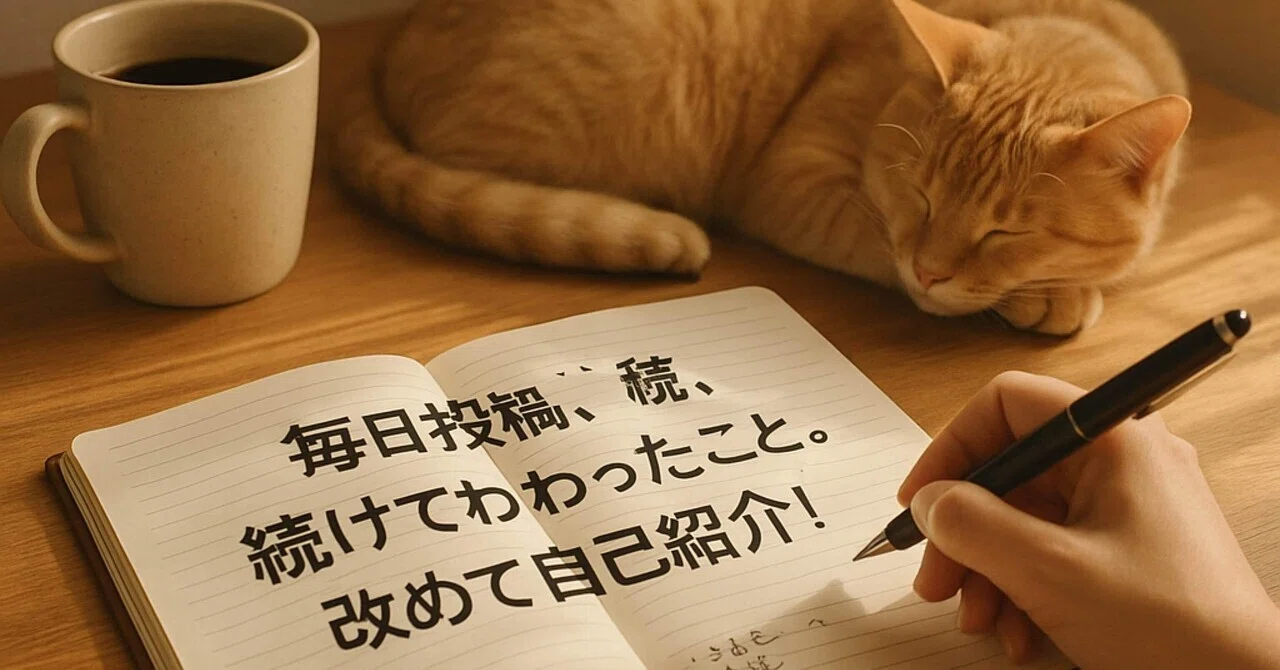 毎日投稿、続、
続けてわわったこと。
改めて自己紹介!